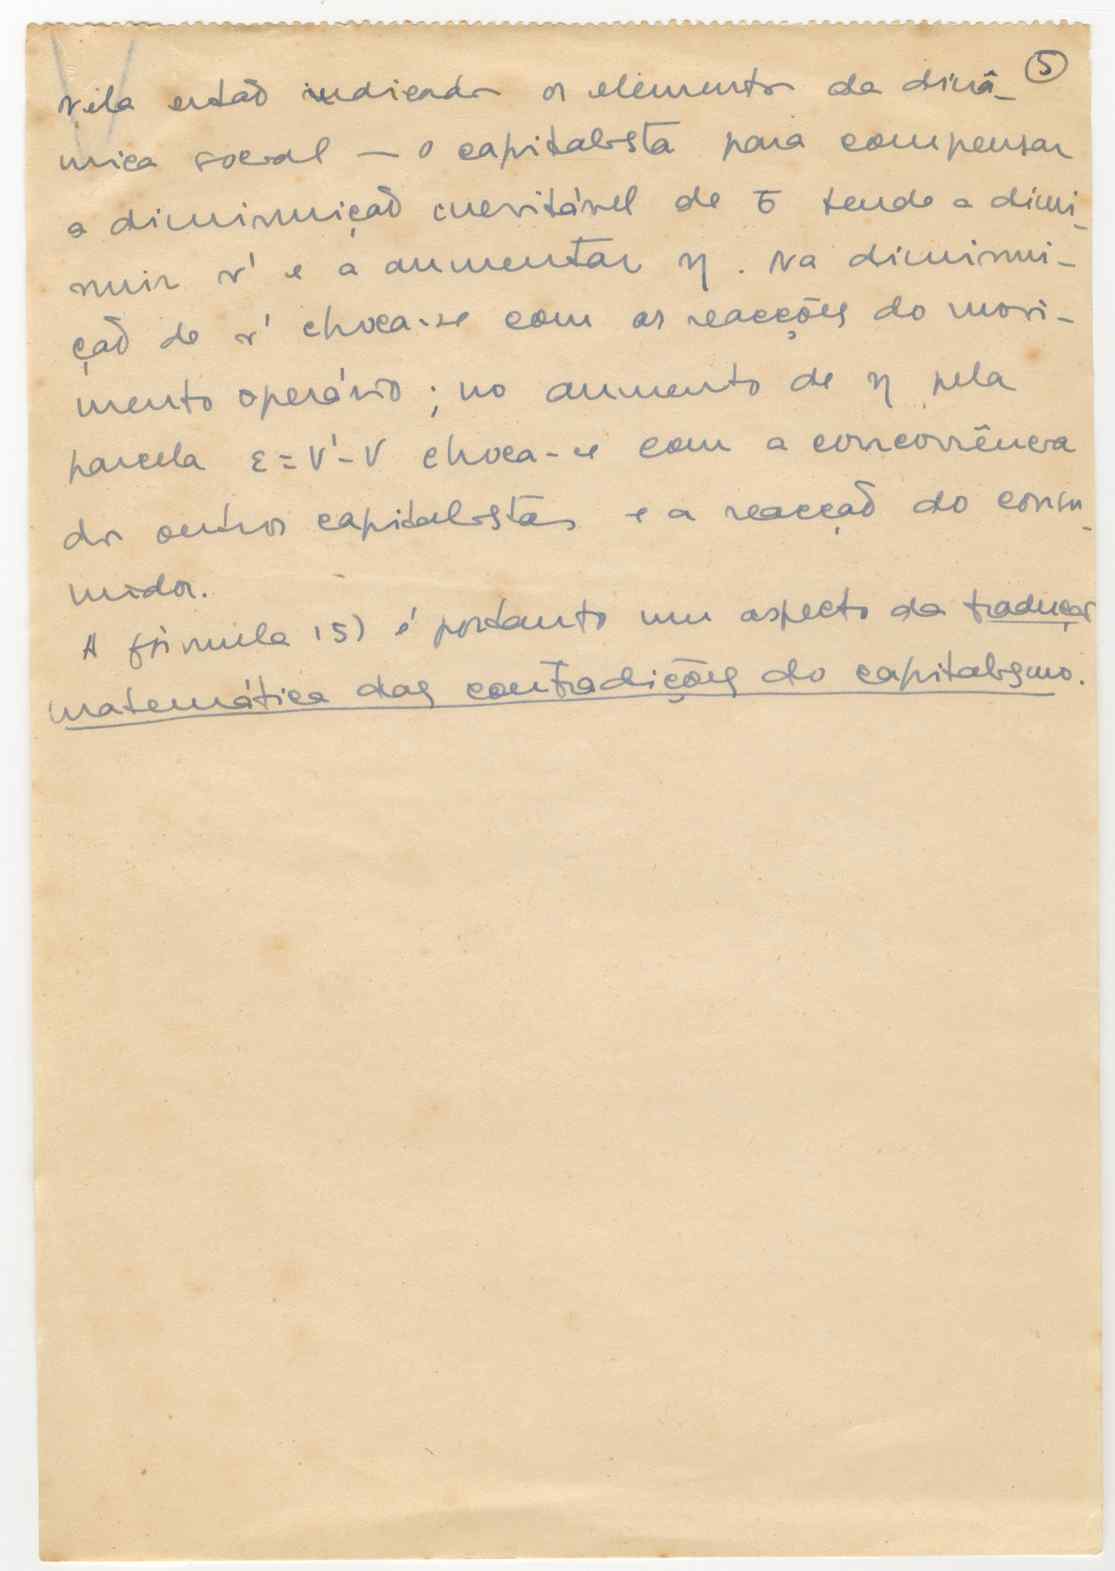 5
Nela estão indicados os elementos da dinâ-
mica social — o capitalista para compensar
a diminuição inevitável de σ tende a dimi-
nuir v' e a aumentar η. Na diminui-
ção de v' choca-se com as reacções do movi-
mento operário; no aumento de η pela
parcela ε = V' - V choca-se com a concorrência
dos outros capitalistas e a reacção do consu-
midor.
A fórmula (5) é portanto um aspecto da tradução
matemática das contradições do capitalismo.